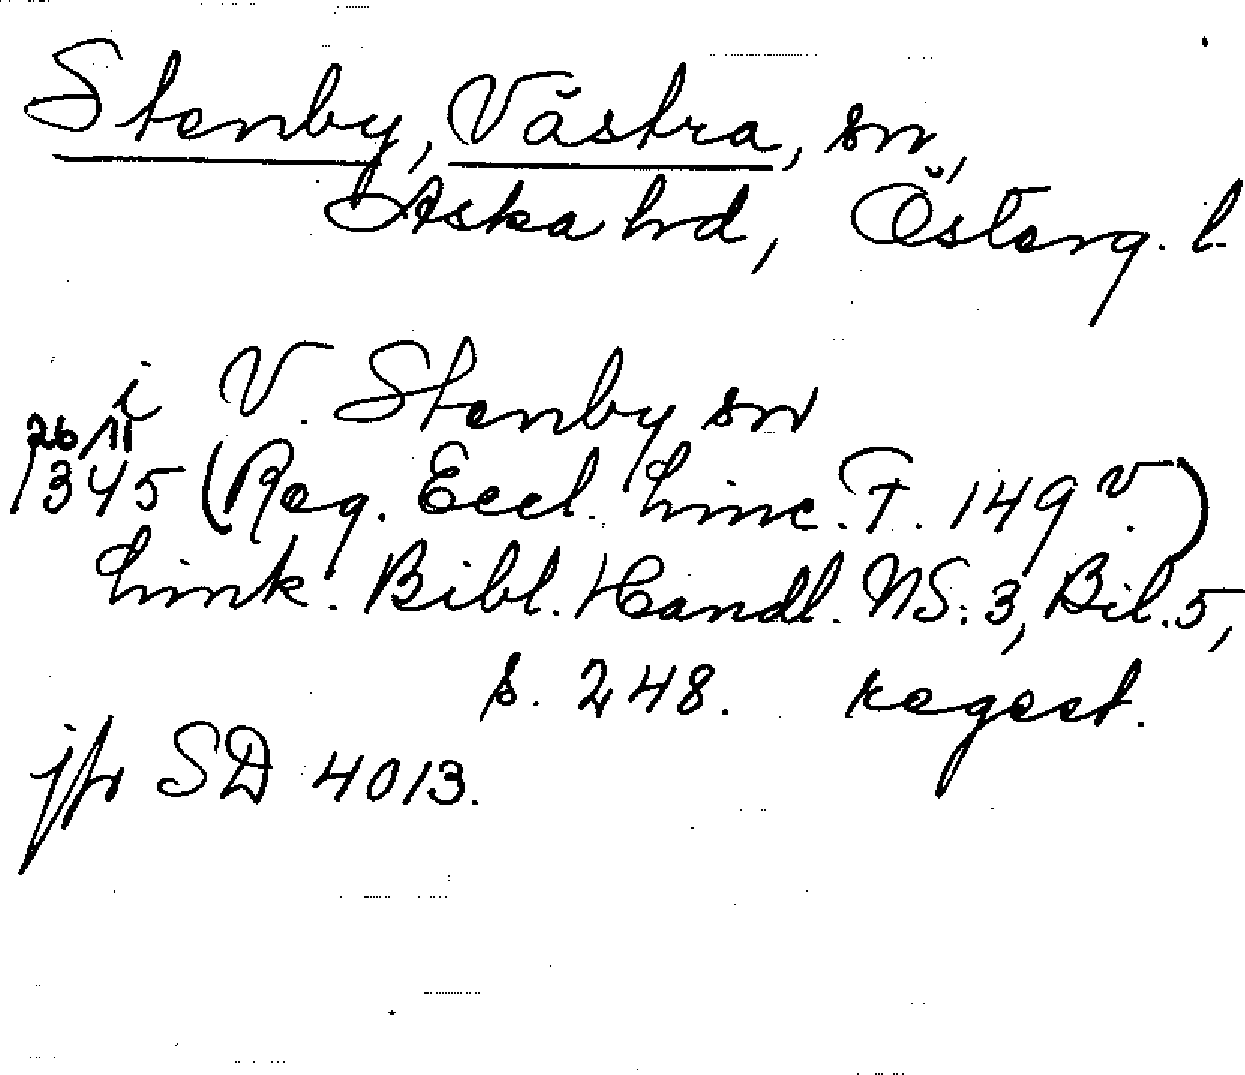 Stenby, Västra, sn,
Aska hd, Österg. l.
i V. Stenby sn
26/11
1345 (Reg. Eccl. Linc. F. 149 v.)
Link. Bibl. Handl. NS: 3, Bil. 5,
s. 248. regest.
jfr SD 4013.